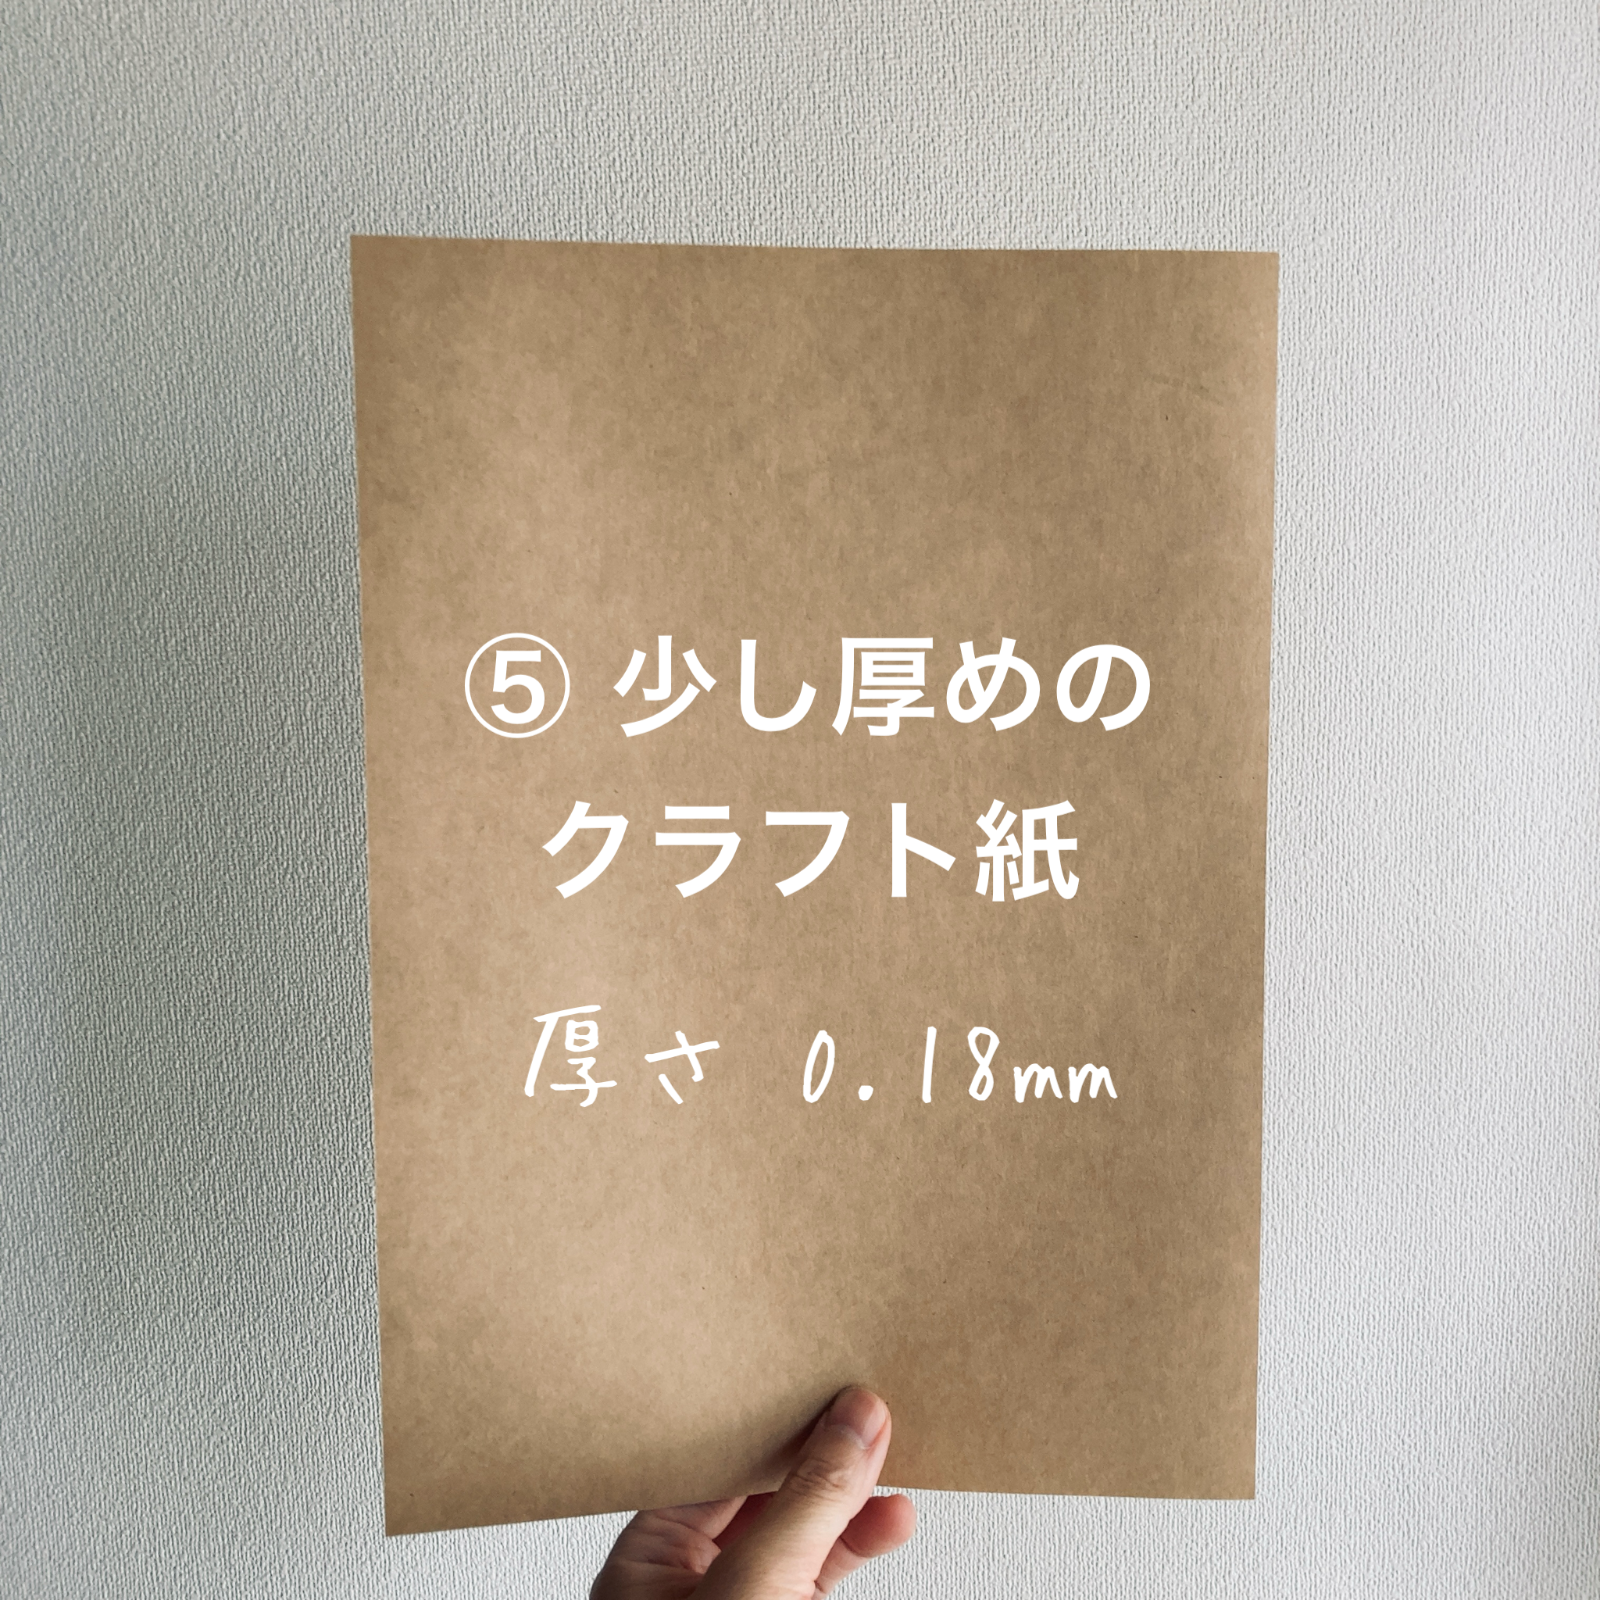 ⑤ 少し厚めの
クラフト紙
厚さ 0.18mm